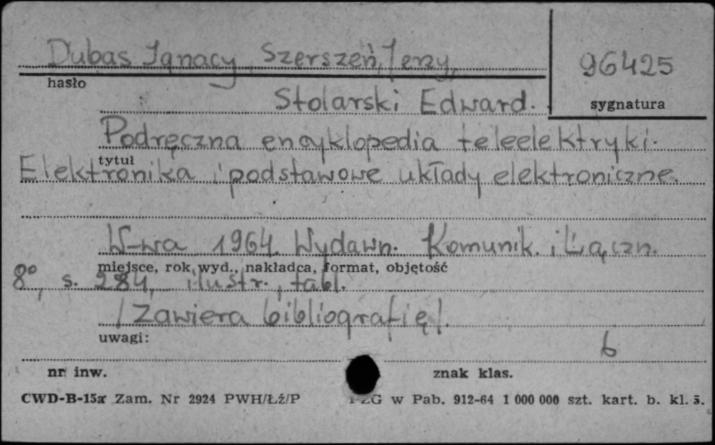 Dubas Ignacy, Szerszeń, Jerzy,
96425
hasło
Stolarski Edward.
sygnatura
Podręczna encyklopedia teleelektryki.
tytuł
Elektronika i podstawowe układy elektroniczne.
W-wa 1964. Wydawn. Komunik. i Łączn.
miejsce, rok wyd., nakładca, format, objętość
8°, s. 284, ilustr., tabl.
/Zawiera bibliografię/.
uwagi:
6
nr inw.
znak klas.
CWD-B-15a Zam. Nr 2924 PWH/Łź/P
PZG w Pab. 912-64 1 000 000 szt. kart. b. kl. 5.